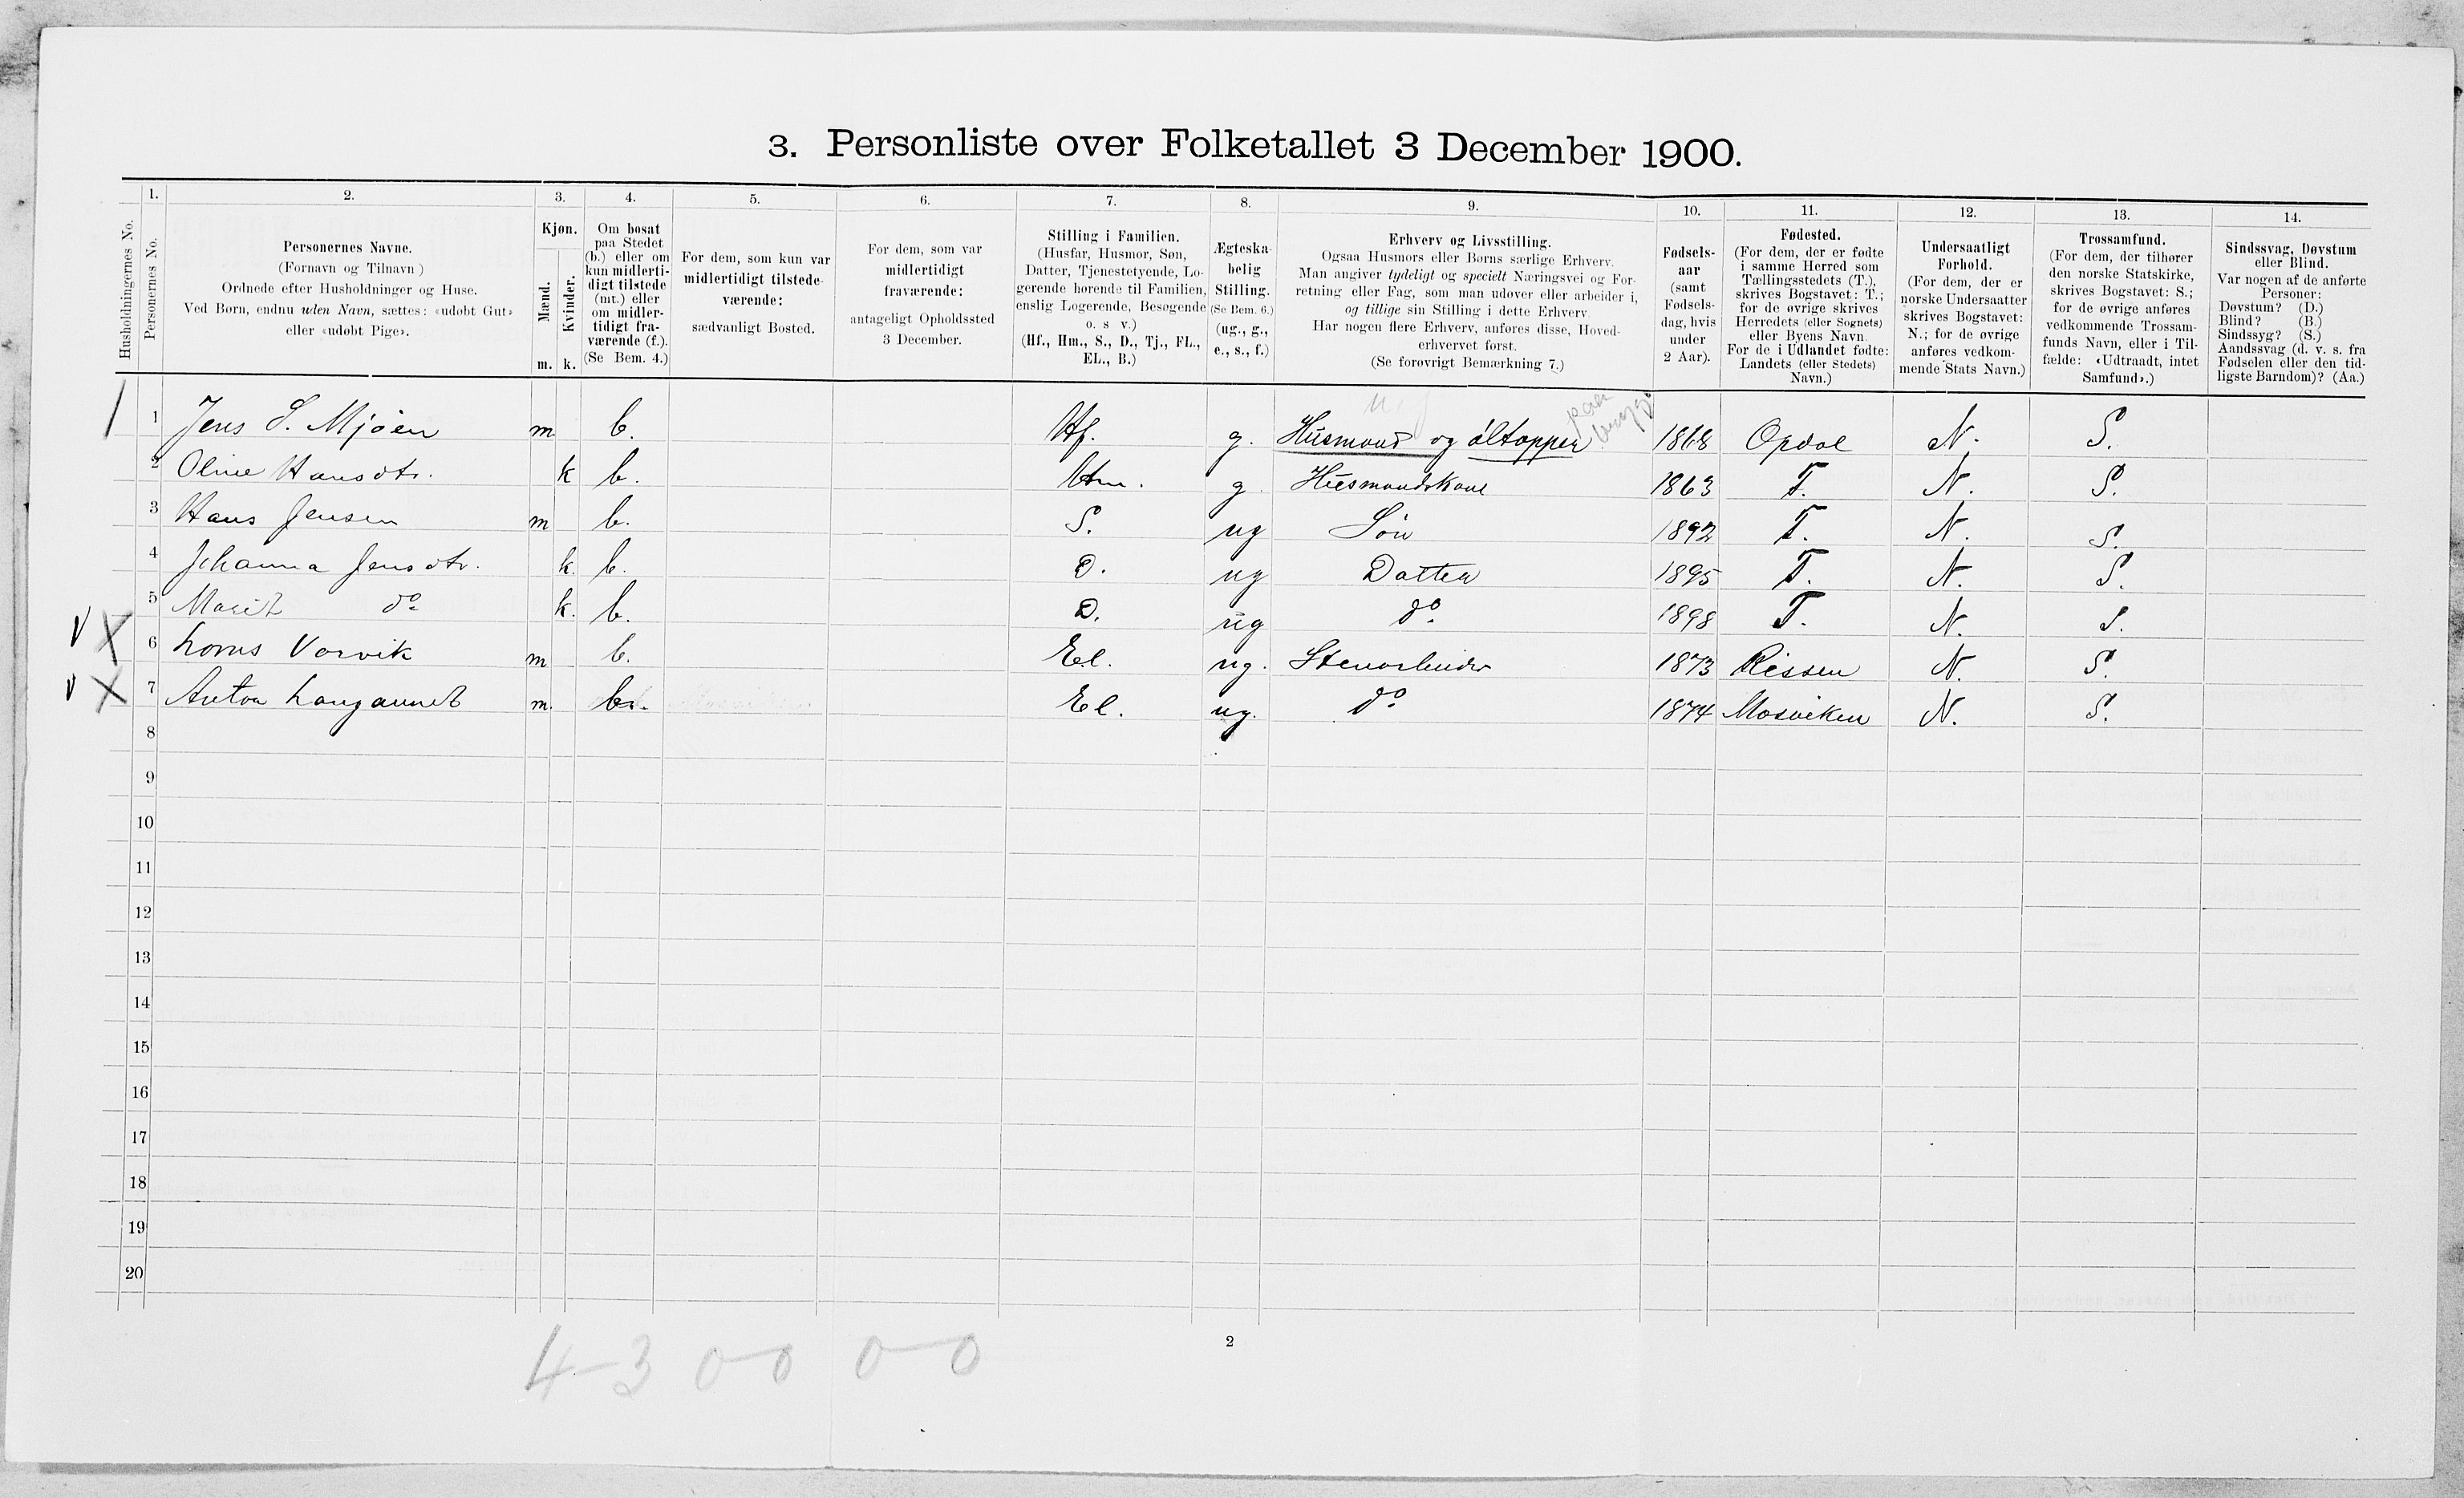 3. Personliste over Folketallet 3 December 1900.
1. 2. 3. 4. 5. 6. 7. 8. 9. 10. 11. 12. 13. 14.
Husholdningernes No.
Personernes No.
Personernes Navne.
(Fornavn og Tilnavn)
Ordnede efter Husholdninger og Huse.
Ved Børn, endnu uden Navn, sættes: «udøbt Gut»
eller «udøbt Pige».
Kjøn.
Mænd.
Kvinder.
m. k.
Om bosat
paa Stedet
(b.) eller om
kun midlerti-
digt tilstede
(mt.) eller
om midler-
tidigt fra-
værende (f.).
(Se Bem. 4.)
For dem, som kun var
midlertidigt tilstede-
værende:
sædvanligt Bosted.
For dem, som var
midlertidigt
fraværende:
antageligt Opholdssted
3 December.
Stilling i Familien.
(Husfar, Husmor, Søn,
Datter, Tjenestetyende, Lo-
gerende hørende til Familien,
enslig Logerende, Besøgende
o. s v.)
(Hf., Hm., S., D., Tj., FL.,
EL., B.)
Ægteska-
belig
Stilling.
(Se Bem. 6.)
(ug., g.,
e., s., f.)
Erhverv og Livsstilling.
Ogsaa Husmors eller Børns særlige Erhverv.
Man angiver tydeligt og specielt Næringsvei og For-
retning eller Fag, som man udøver eller arbeider i,
og tillige sin Stilling i dette Erhverv.
Har nogen flere Erhverv, anføres disse, Hoved-
erhvervet først.
(Se forøvrigt Bemærkning 7.)
Fødsels-
aar
(samt
Fødsels-
dag, hvis
under
2 Aar).
Fødested.
(For dem, der er fødte
i samme Herred som
Tællingsstedets (T.),
skrives Bogstavet: T.;
for de øvrige skrives
Herredets (eller Sognets)
eller Byens Navn.
For de i Udlandet fødte:
Landets (eller Stedets)
Navn.)
Undersaatligt
Forhold.
(For dem, der er
norske Undersaatter
skrives Bogstavet:
N.; for de øvrige
anføres vedkom-
mende Stats Navn.)
Trossamfund.
(For dem, der tilhører
den norske Statskirke,
skrives Bogstavet: S.;
for de øvrige anføres
vedkommende Trossam-
funds Navn, eller i Til-
fælde: «Udtraadt, intet
Samfund».)
Sindssvag, Døvstum
eller Blind.
Var nogen af de anførte
Personer:
Døvstum? (D.)
Blind? (B.)
Sindssyg? (S.)
Aandssvag (d. v. s. fra
Fødselen eller den tid-
ligste Barndom)? (Aa.)
1 Jens S. Mjøen m b. Hf. g. Husmand og øltapper 1868 Opdal N. S.
2 Oline Hansdtr. k b. Hm. g. Husmandskone 1863 T. N. S.
3 Hans Jensen m b. S. ug Søn 1892 T. N. S.
4 Johanna Jensdtr. k. b. D. ug Datter 1895 T. N. S.
5 Marit do k. b. D. ug do 1898 T. N. S.
V X 6 Lorns Vorvik m b. El. ug. Stenarbeider 1873 Rissen N. S.
V X 7 Anton Langaunet m. b. El. ug. do 1874 Mosviken N. S.
8
9
10
11
12
13
14
15
16
17
18
19
20
2
4-3 0-0 0-0